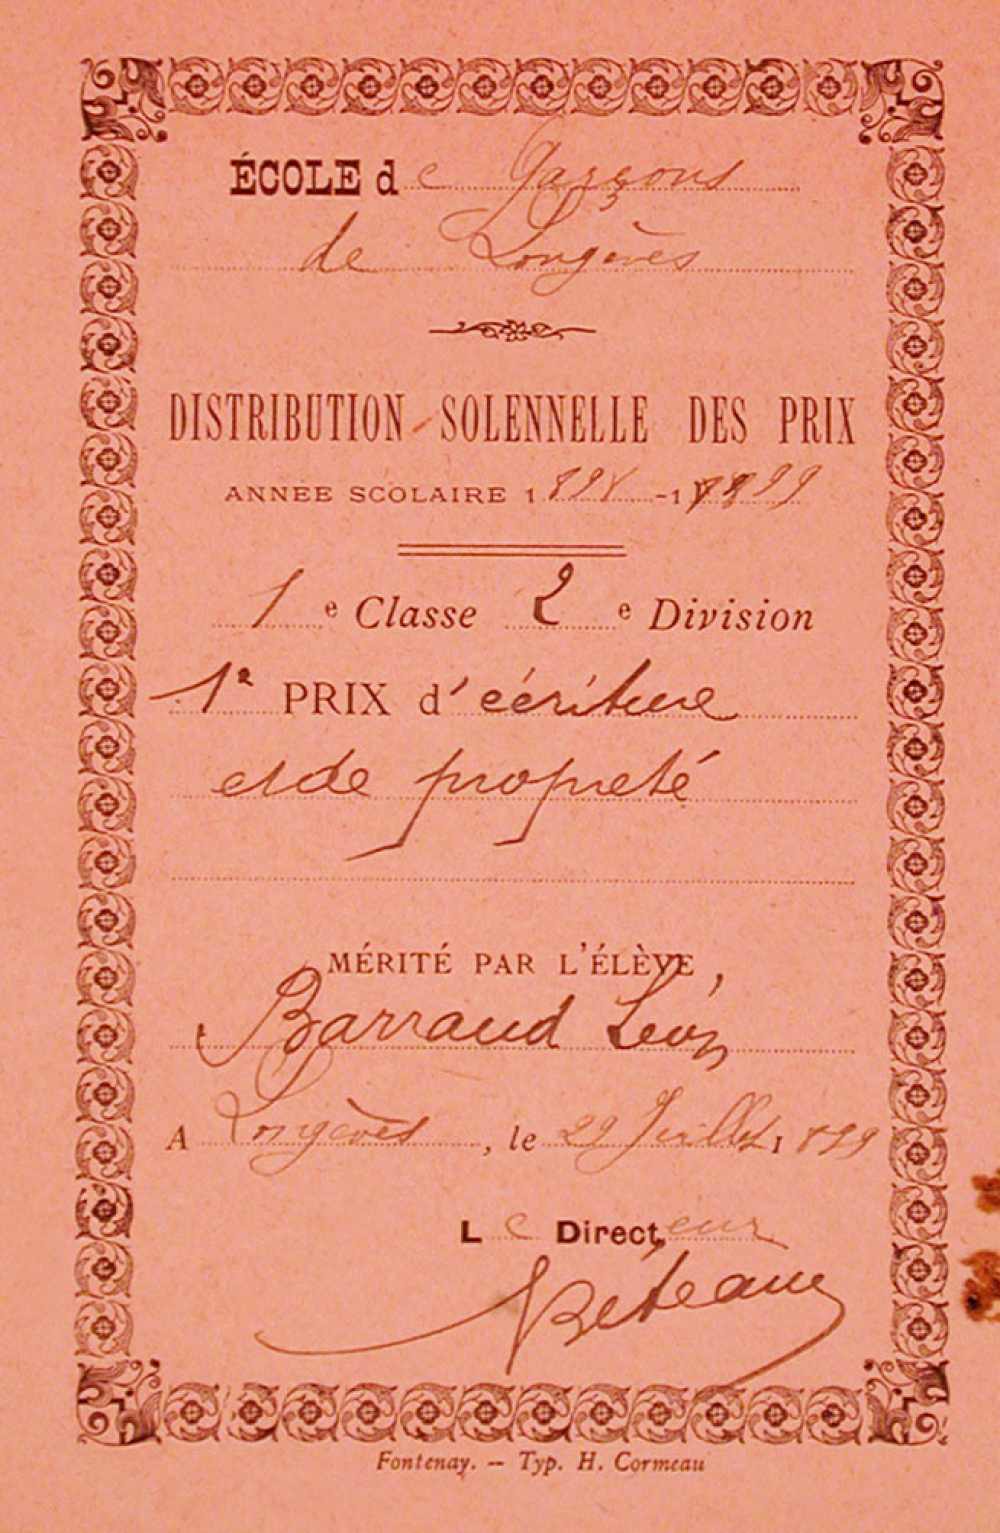 ÉCOLE de Garçons
de Longèves
DISTRIBUTION SOLENNELLE DES PRIX
ANNÉE SCOLAIRE 1898-1899
1e Classe 2e Division
1e PRIX d'écriture
et de propreté
MÉRITÉ PAR L'ÉLÈVE,
Barraud Léon
A Longèves, le 29 Juillet 1899
Le Directeur
Fontenay. — Typ. H. Cormeau